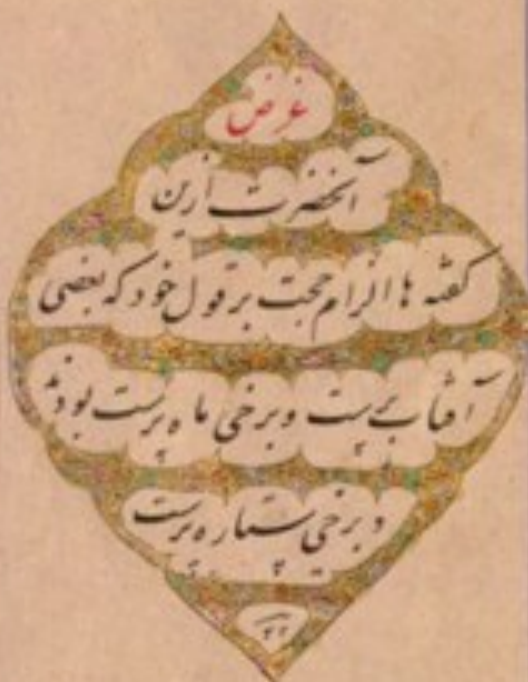 غرض
آنحضرت ازین
گفته ها الزام حجت بر قول خود که بعضی
آفتاب پرست و برخی ماه پرست بودند
و برخی ستاره پرست